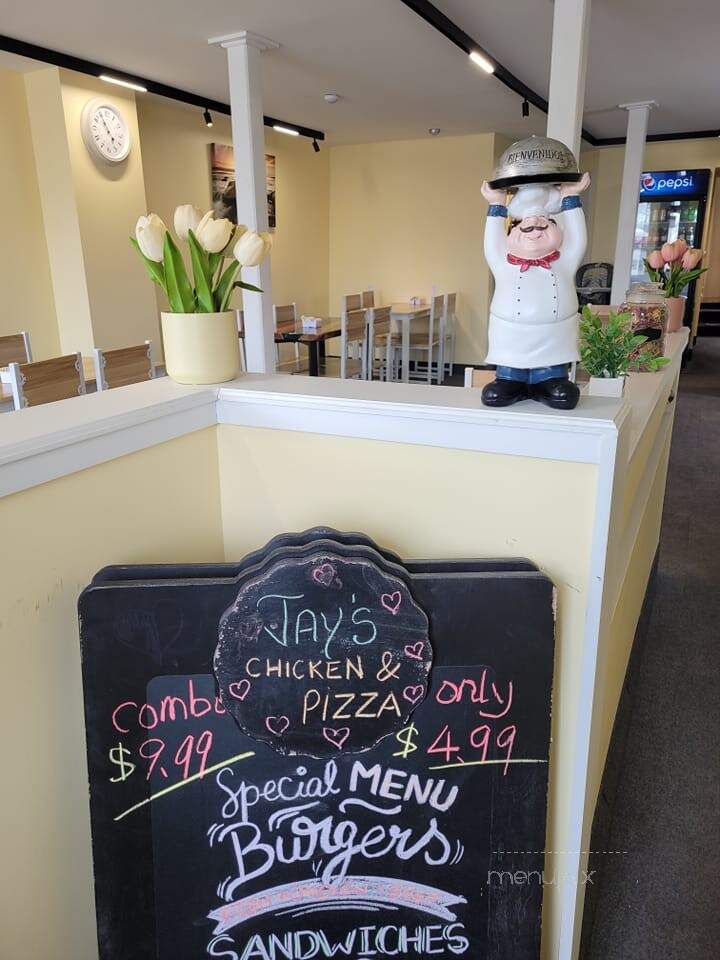 BIENVENIDOS
pepsi
JAY'S
CHICKEN &
PIZZA
combo
$9.99
only
$4.99
Special MENU
Burgers
SANDWICHES